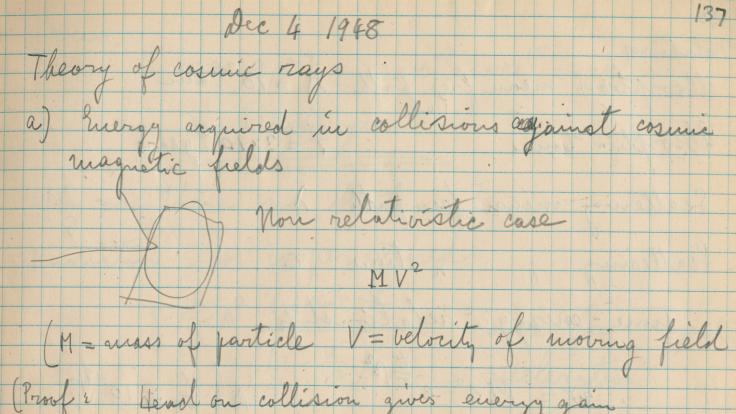 137
Dec 4 1948
Theory of cosmic rays
a) Energy acquired in collisions against cosmic
magnetic fields
Non relativistic case
MV²
(M = mass of particle V = velocity of moving field
(Proof: Head on collision gives energy gain